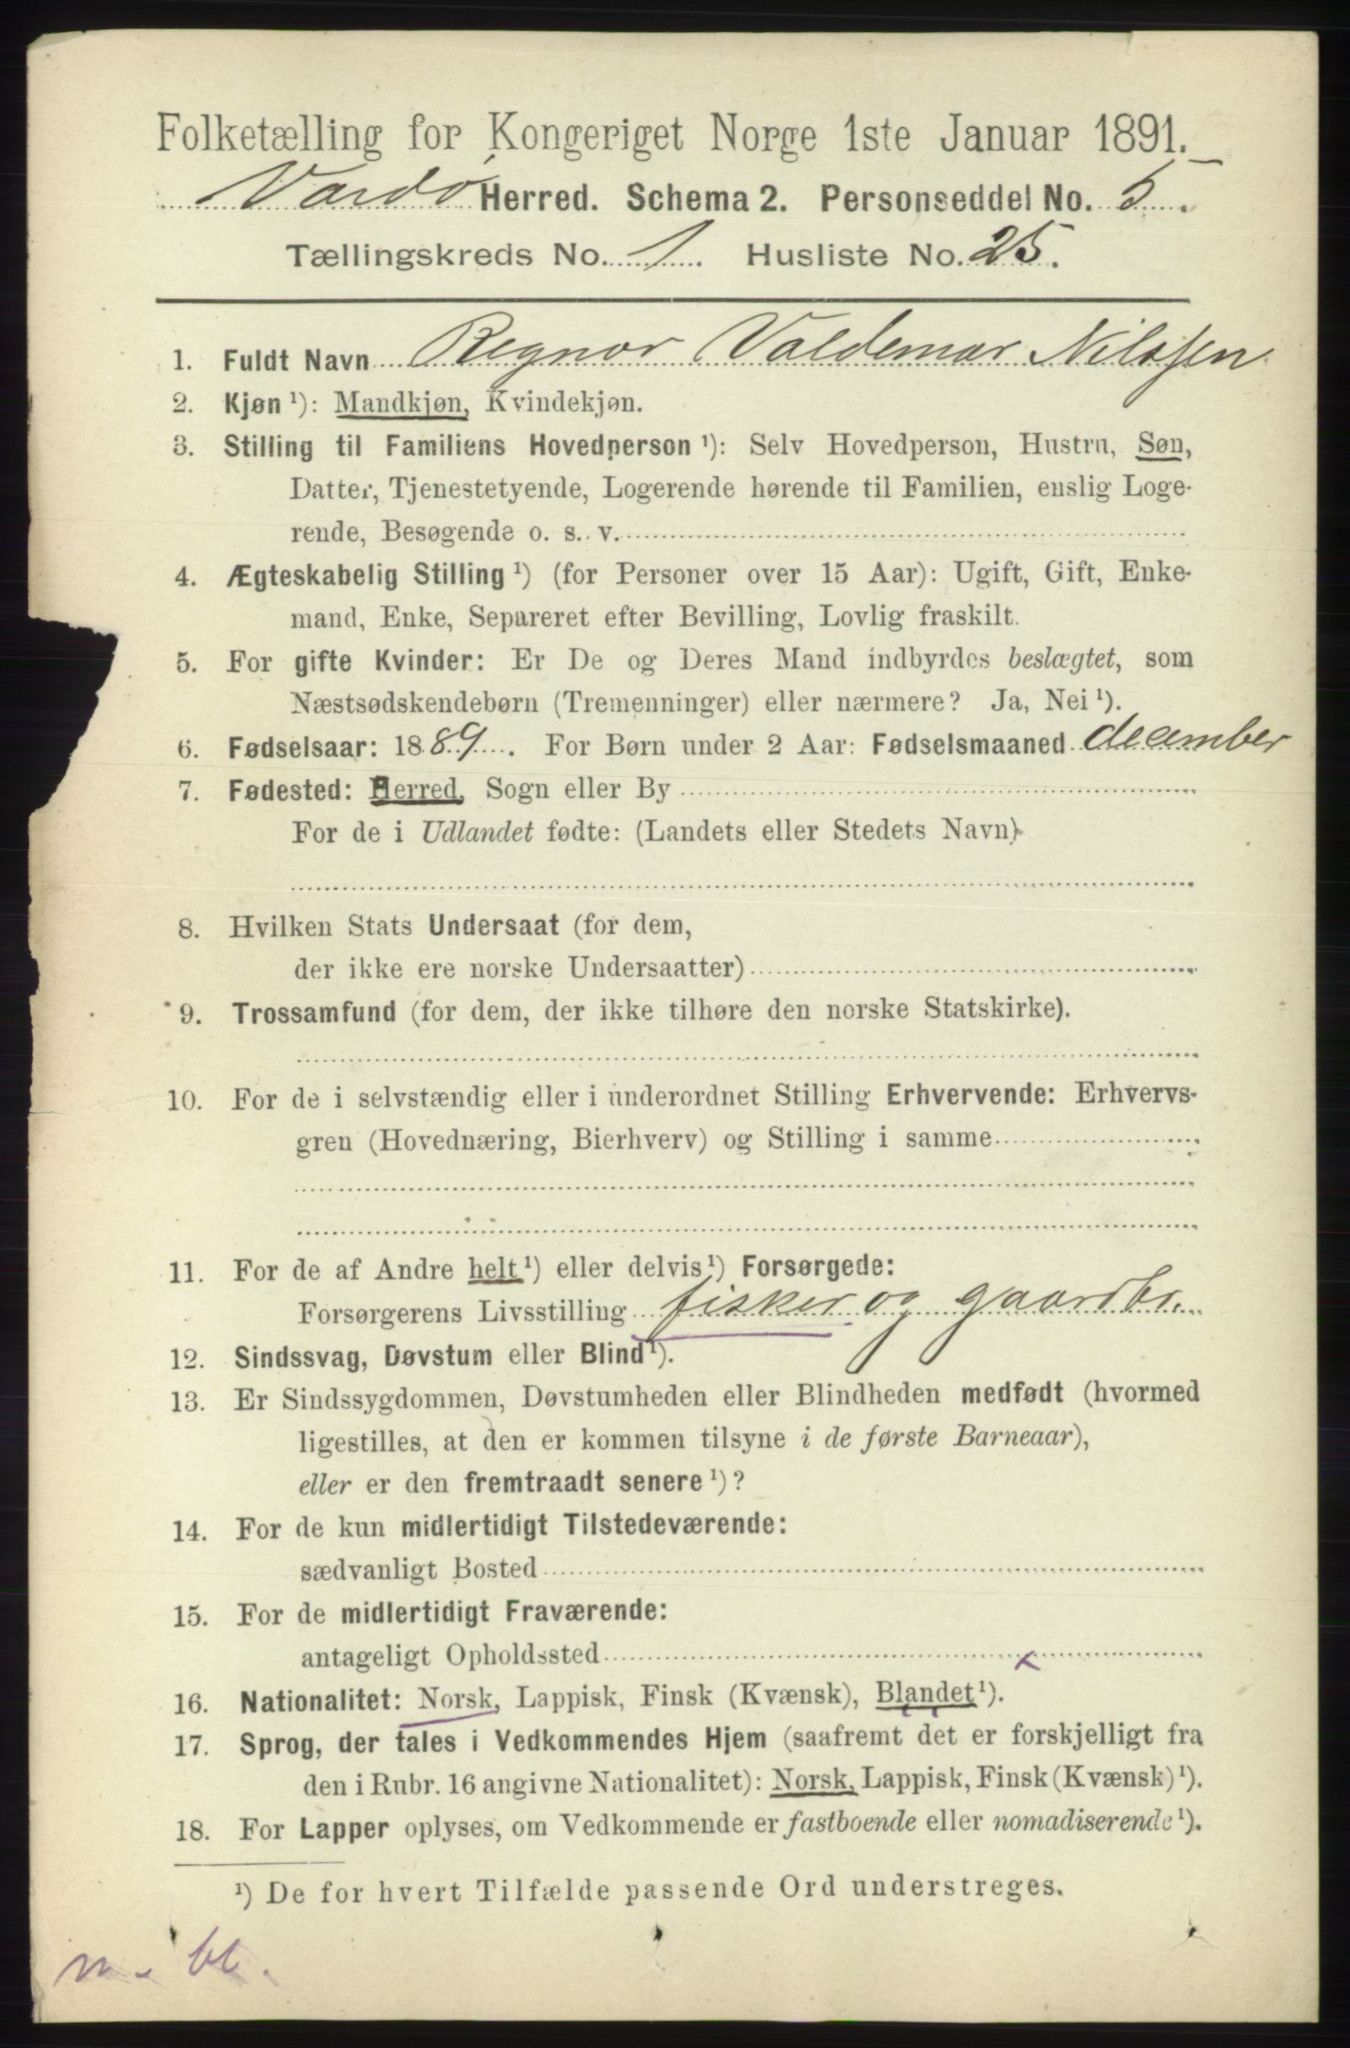 Folketælling for Kongeriget Norge 1ste Januar 1891.
Vardø Herred. Schema 2. Personseddel No. 5.
Tællingskreds No. 1. Husliste No. 25.
1. Fuldt Navn Regnor Valdemar Nilssen
2. Kjøn ¹): Mandkjøn, Kvindekjøn.
3. Stilling til Familiens Hovedperson ¹): Selv Hovedperson, Hustru, Søn,
Datter, Tjenestetyende, Logerende hørende til Familien, enslig Loge-
rende, Besøgende o. s. v.
4. Ægteskabelig Stilling ¹) (for Personer over 15 Aar): Ugift, Gift, Enke-
mand, Enke, Separeret efter Bevilling, Lovlig fraskilt.
5. For gifte Kvinder: Er De og Deres Mand indbyrdes beslægtet, som
Næstsødskendebørn (Tremenninger) eller nærmere? Ja, Nei ¹).
6. Fødselsaar: 1889. For Børn under 2 Aar: Fødselsmaaned december
7. Fødested: Herred, Sogn eller By
For de i Udlandet fødte: (Landets eller Stedets Navn)
8. Hvilken Stats Undersaat (for dem,
der ikke ere norske Undersaatter)
9. Trossamfund (for dem, der ikke tilhøre den norske Statskirke).
10. For de i selvstændig eller i underordnet Stilling Erhvervende: Erhvervs-
gren (Hovednæring, Bierhverv) og Stilling i samme
11. For de af Andre helt ¹) eller delvis ¹) Forsørgede:
Forsørgerens Livsstilling fisker og gaardbr.
12. Sindssvag, Døvstum eller Blind ¹).
13. Er Sindssygdommen, Døvstumheden eller Blindheden medfødt (hvormed
ligestilles, at den er kommen tilsyne i de første Barneaar),
eller er den fremtraadt senere ¹)?
14. For de kun midlertidigt Tilstedeværende:
sædvanligt Bosted
15. For de midlertidigt Fraværende:
antageligt Opholdssted
x
16. Nationalitet: Norsk, Lappisk, Finsk (Kvænsk), Blandet ¹).
17. Sprog, der tales i Vedkommendes Hjem (saafremt det er forskjelligt fra
den i Rubr. 16 angivne Nationalitet): Norsk, Lappisk, Finsk (Kvænsk) ¹).
18. For Lapper oplyses, om Vedkommende er fastboende eller nomadiserende ¹).
¹) De for hvert Tilfælde passende Ord understreges.
n. bl.